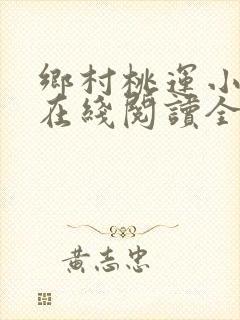 鄉村桃運小
在綫閱讀全
黃志忠